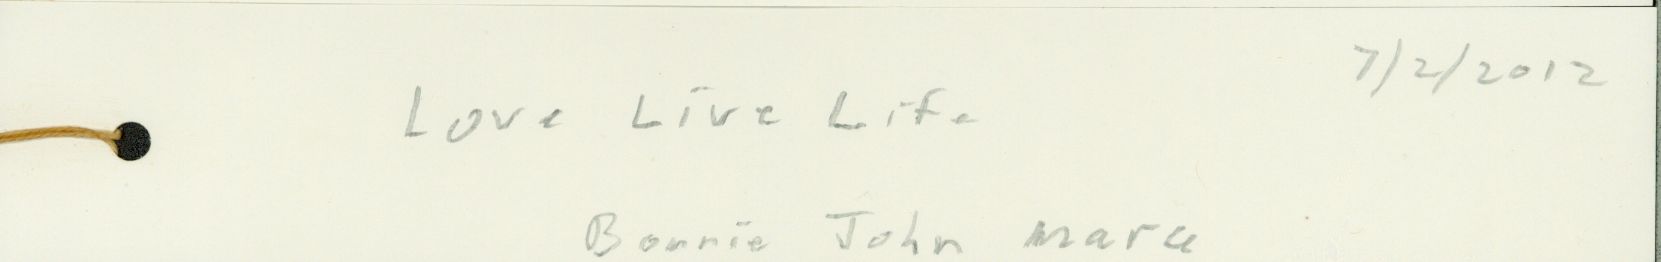 7/2/2012
Love Live Life
Bonnie John